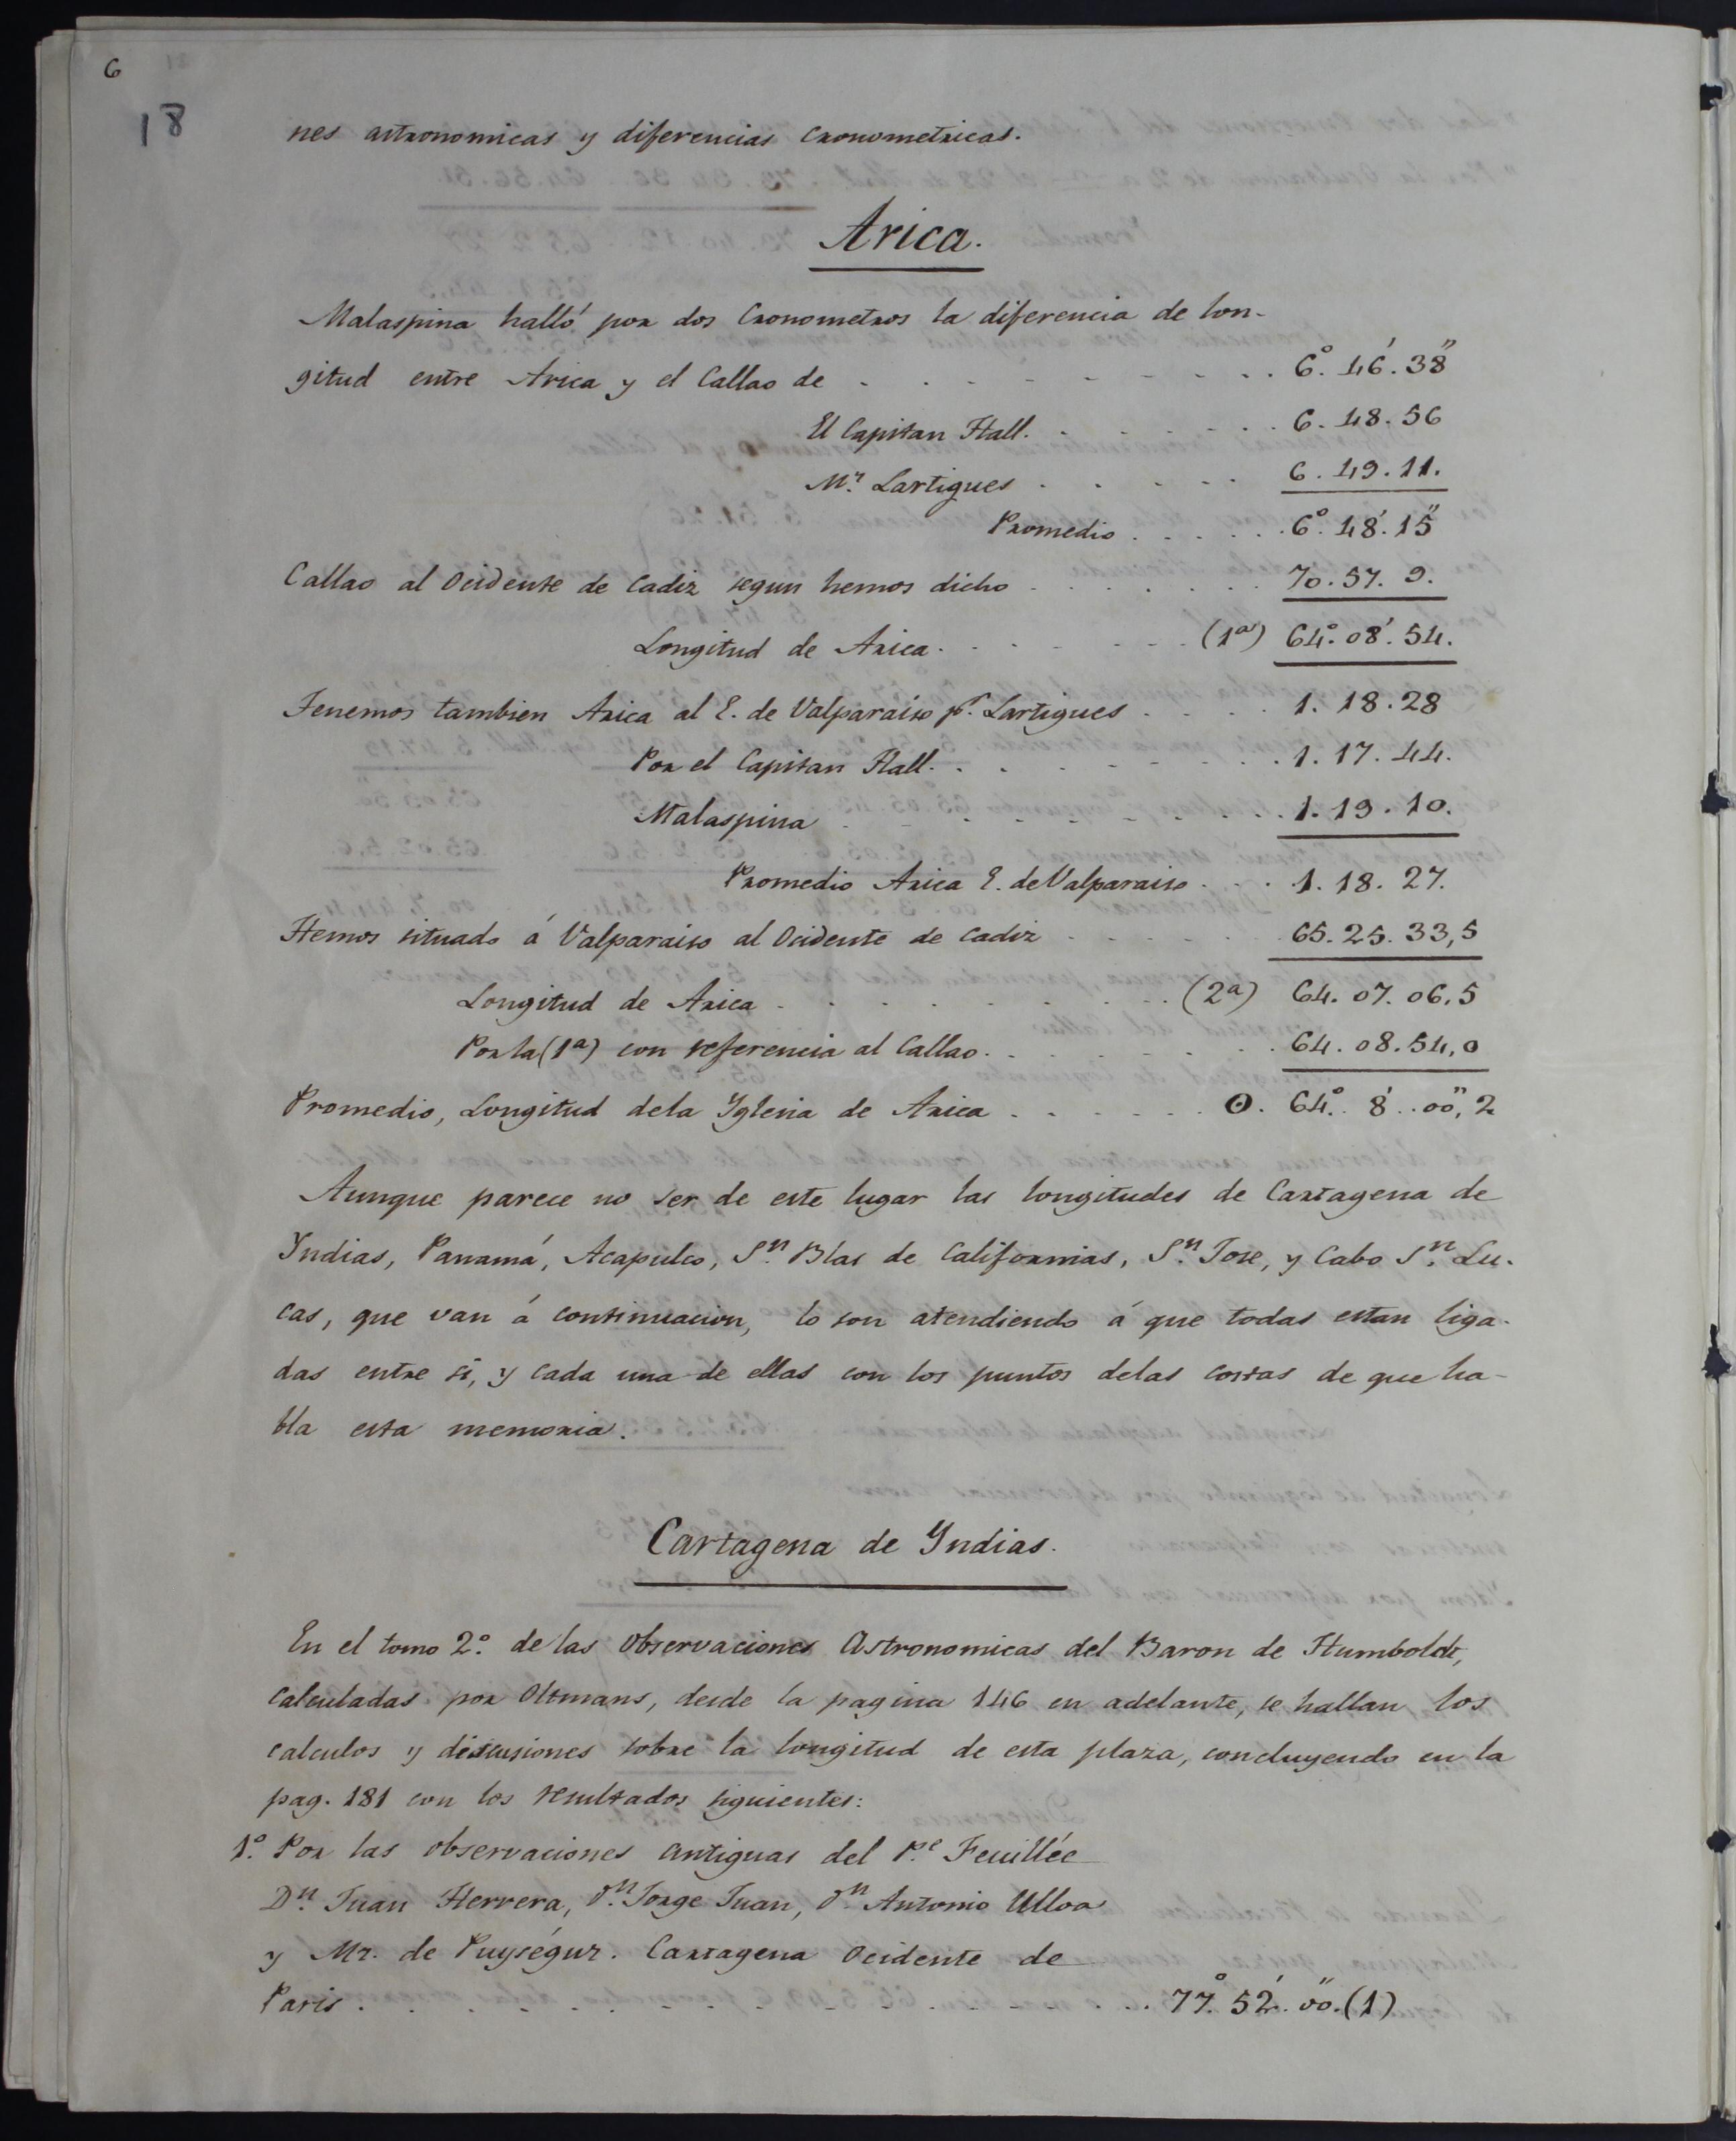 6
18
nes astronomicas y diferencias cronometricas.
Arica.
Malaspina halló por dos Cronometros la diferencia de lon-
gitud entre Arica y el Callao de . . . . . . . . . 6°. 46'. 38"
El Capitan Hall. . . . . . . 6. 48. 56
Mr. Lartigues . . . . . 6. 49. 11.
Promedio . . . . . 6°. 48'. 15"
Callao al Ocidente de Cadiz segun hemos dicho . . . . . . . 70. 57. 9.
Longitud de Arica. . . . . . . (1a) 64°. 08'. 54.
Tenemos tambien Arica al E. de Valparaiso pr. Lartigues . . . . 1. 18. 28
Por el Capitan Hall. . . . . . . . . 1. 17. 44.
Malaspina . . . . . . . . . . 1. 19. 10.
Promedio Arica E. de Valparaiso . . . 1. 18. 27.
Hemos situado á Valparaiso al Ocidente de Cadiz . . . . . . 65. 25. 33,5
Longitud de Arica . . . . . . . . . (2a) 64. 07. 06,5
Por la (1a) con referencia al Callao. . . . . . . . . 64. 08. 54,0
Promedio, Longitud dela Yglesia de Arica . . . . . . ʘ. 64°. 8'. . 00", 2
Aunque parece no ser de este lugar las longitudes de Cartagena de
Yndias, Panamá, Acapulco, Sn. Blas de Californias, Sn. Jose, y Cabo Sn. Lu-
cas, que van á continuacion, lo son atendiendo á que todas estan liga-
das entre si, y cada una de ellas con los puntos delas costas de que ha-
bla esta memoria.
Cartagena de Yndias.
En el tomo 2°. de las Observaciones Astronomicas del Baron de Humboldt,
calculadas por Oltmans, desde la pagina 146 en adelante, se hallan los
calculos y discusiones sobre la longitud de esta plaza, concluyendo en la
pag. 181 con los resultados siguientes:
1°. Por las observaciones antiguas del Pe. Feuillée
Dn. Juan Herrera, Dn. Jorge Juan, Dn. Antonio Ulloa
y Mr. de Puységur. Cartagena Ocidente de
Paris . . . . . . . . . . . . . 77°. 52'. 00". (1)